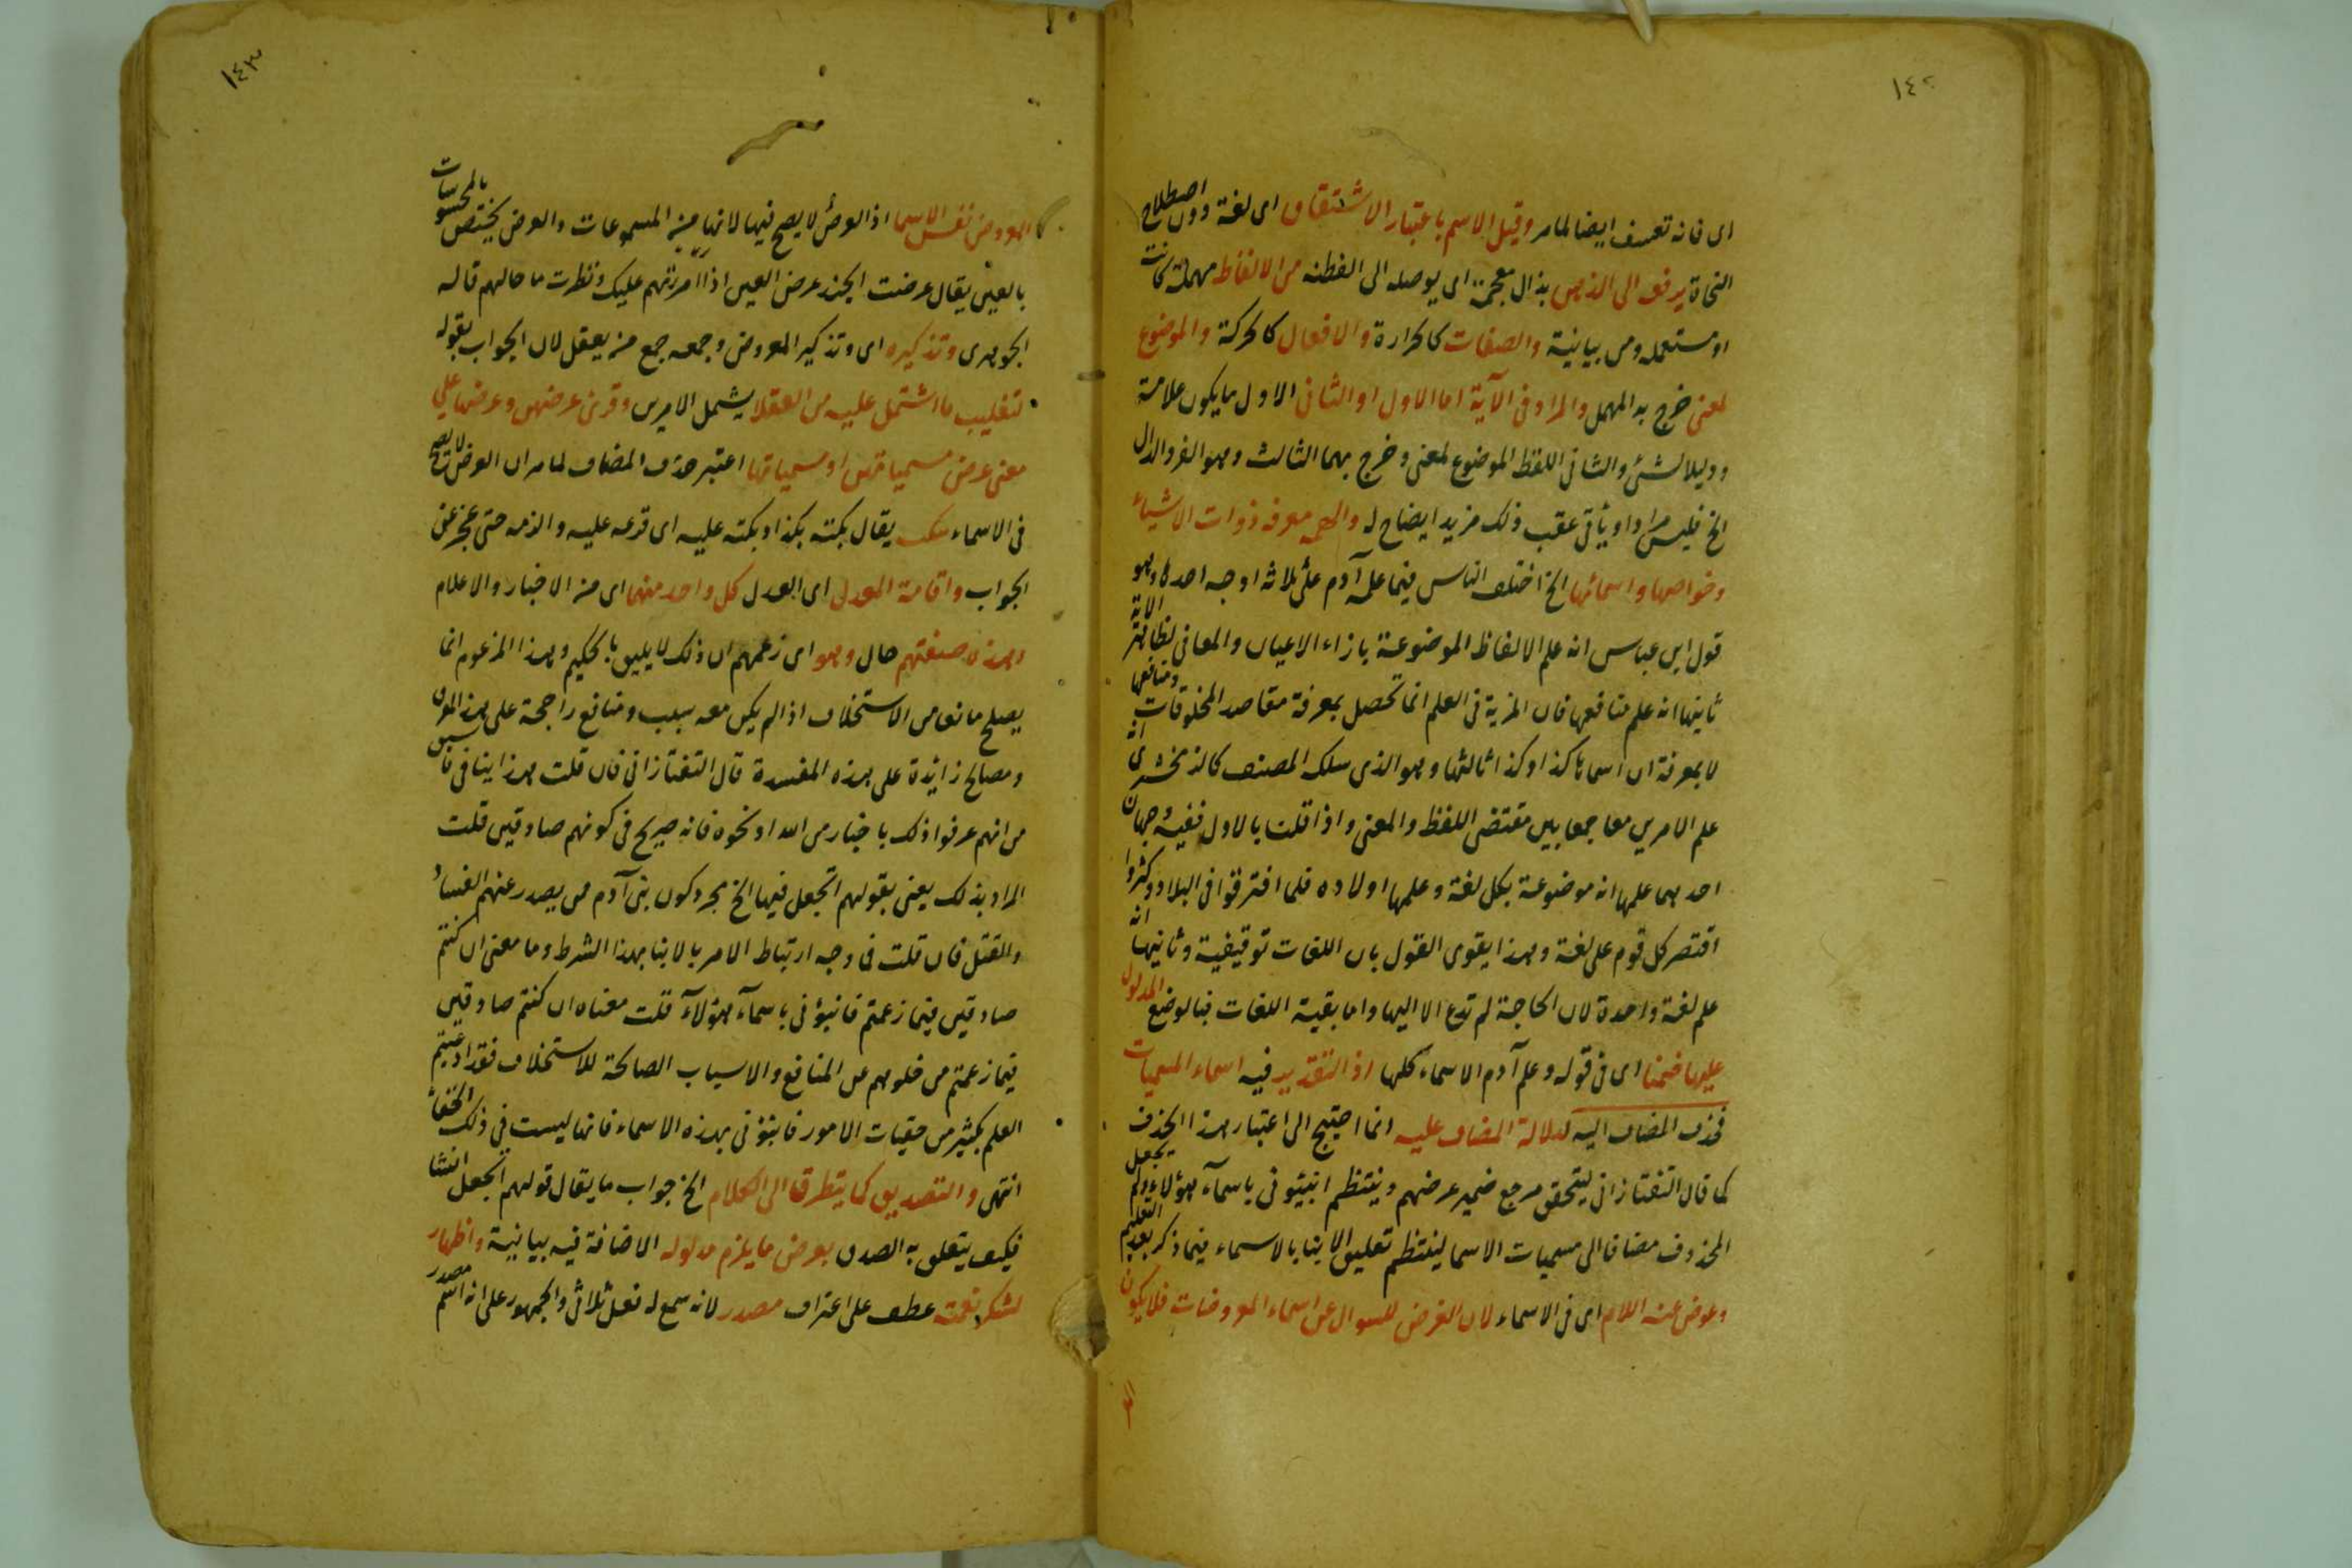 ١٤٢
اى فانه تعسف ايضا لما مر وقيل الاسم باعتبار الاشتقاق اى لغة دون اصطلاح
النحاة يرفعه الى الذهن بذال معجمة اى يوصله الى الفطنه من الالفاظ مهملة كانت
او مستعمله ومن بيانية والصفات كالحرارة والافعال كالحركة والموضوع
لمعنى خرج به المهمل والمراد فى الآية اما الاول او الثانى الاول ما يكون علامة
ودليلا لشئ والثانى اللفظ الموضوع لمعنى وخرج بهما الثالث وهو المفرد الدال
الخ فليس مرادا ويأتى عقب ذلك مزيد ايضاح له والهمه معرفه ذوات الاشياء
وخواصها واسمائها الخ اختلف الناس فيما علمه آدم على ثلاثه اوجه احدها وهو
قول ابن عباس انه علم الالفاظ الموضوعة بازاء الاعيان والمعانى لظاهر الآية
ثانيها انه علم منافعها فان المزية فى العلم انما تحصل بمعرفة مقاصد المخلوقات ومنافعها
لا بمعرفة ان اسماها كذا وكذا ثالثها وهو الذى سلكه المصنف كالزمخشرى انه
علم الامرين معا جمعا بين مقتضى اللفظ والمعنى واذا قلنا بالاول ففيه وجهان
احدهما علمها انه موضوعة بكل لغة وعلمها اولاده فلما افترقوا فى البلاد وكثروا
اقتصر كل قوم على لغة وهذا يقوى القول بان اللغات توقيفية وثانيها انه
علم لغة واحدة لان الحاجة لم تدع الا اليها واما بقية اللغات فبالوضع المدلول
عليها ضمنا اى فى قوله وعلم آدم الاسماء كلها اذ التقدير فيه اسماء المسميات
فحذف المضاف اليه لدلالة المضاف عليه انما احتيج الى اعتبار هذا الحذف
كما قال التفتازانى ليتحقق مرجع ضمير عرضهم وينتظم انبئونى باسمآء هؤلاء ولم يجعل
المحذوف مضافا الى مسميات الاسما لينتظم تعليق الانبا بالاسماء فيما ذكر بعد التعليم
وعوض عنه اللام اى فى الاسماء لان الغرض للسوال عن اسماء المعروضات فلا يكون
١٤٣
المعروض نفس الاسما اذ العرض لا يصح فيها لانها من المسموعات والعرض يختص بالمحسوسات
بالعين يقال عرضت الجند عرض العين اذا امررتهم عليك ونظرت ما حالهم قاله
الجوهرى وتذكيره اى وتذكير المعروض وجمعه جمع من يعقل لان الجواب بقوله
لتغليب ما اشتمل عليه من العقلا يشمل الامرين وقرئ عرضهن وعرضها على
معنى عرض مسمياتهن او مسمياتها اعتبر حذف المضاف لما مر ان العرض لا يصح
فى الاسماء يقال بكته بكذا وبكته عليه اى قرعه عليه والزمه حتى عجز عن
الجواب واقامة المعدل اى العدل كل واحد منهما اى من الاخبار والاعلام
وهذه صفتهم حال وهو اى زعمهم ان ذلك لا يليق بالحكيم وهذا المزعوم انما
يصلح مانعا من الاستخلاف اذا لم يكن معه سبب ومنافع راجحة على هذا
ومصالح زائدة على هذه المفسدة قال التفتازانى فان قلت هذا ينافى ما سبق
من انهم عرفوا ذلك باخبار من الله او نحوه فانه صريح فى كونهم صادقين قلت
المراد بذلك يعنى بقولهم اتجعل فيها الخ مجرد كون بنى آدم من يصدر عنهم الفساد
والقتل فان قلت فما وجه ارتباط الامر بالانبا بهذا الشرط وما معنى ان كنتم
صادقين فيما زعمتم فانبؤنى باسمآء هؤلاء قلت معناه ان كنتم صادقين
فيما زعمتم من خلوهم عن المنافع والاسباب الصالحة للاستخلاف فقد ادعيتم
العلم بكثير من خفيات الامور فانبئونى بهذه الاسماء فانها ليست فى ذلك الخفاء
انتهى والتصديق كما يتطرق الى الكلام الخ جواب ما يقال قولهم اتجعل انشا
فكيف يتعلق به الصدق بعرض ما يلزم مدلوله الاضافة فيه بيانية واظهار
لشكر نعمته عطف على اعتراف مصدر لانه سمع له فعل ثلاثى والجمهور على انه اسم مصدر